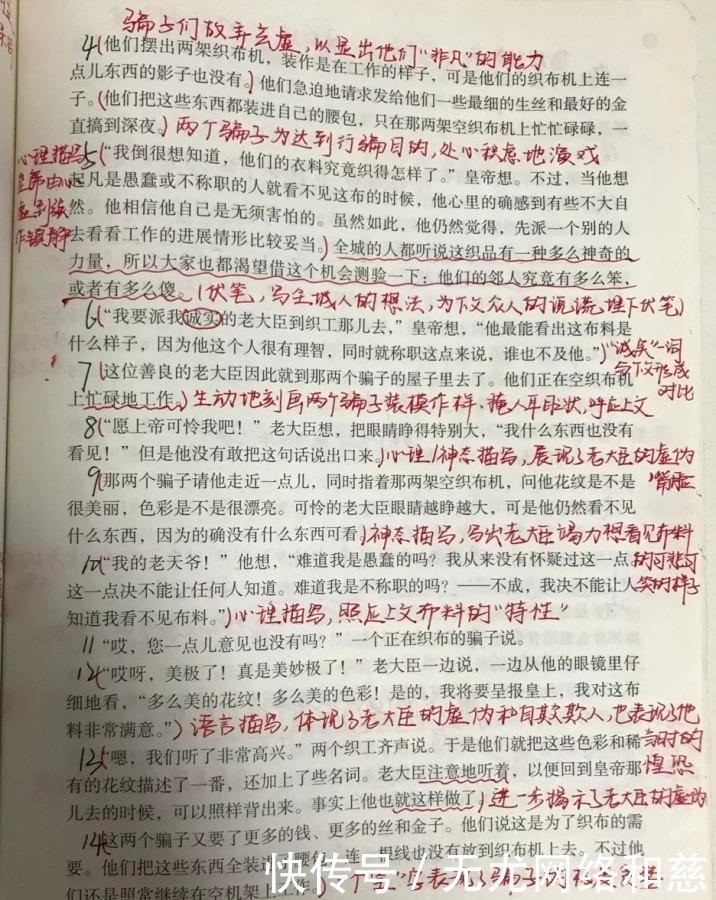 骗子们故弄玄虚,以显出他们“非凡”的能力
4(他们摆出两架织布机,装作是在工作的样子,可是他们的织布机上连一
点儿东西的影子也没有。)他们急迫地请求发给他们一些最细的生丝和最好的金
子。(他们把这些东西都装进自己的腰包,只在那两架空织布机上忙忙碌碌,一
直搞到深夜。)两个骗子为达到行骗目的,处心积虑地演戏
心理描写
皇帝由心
虚到强
作镇静
5(“我倒很想知道,他们的衣料究竟织得怎样了。”皇帝想。不过,当他想
起凡是愚蠢或不称职的人就看不见这布的时候,他心里的确感到有些不大自
然。他相信他自己是无须害怕的。虽然如此,他仍然觉得,先派一个别的人
去看看工作的进展情形比较妥当。)全城的人都听说这织品有一种多么神奇的
力量,所以大家也都渴望借这个机会测验一下:他们的邻人究竟有多么笨,
或者有多么傻。(伏笔,写全城人的想法,为下文众人的说谎埋下伏笔)
6(“我要派我诚实的老大臣到织工那儿去,”皇帝想,“他最能看出这布料是
什么样子,因为他这个人很有理智,同时就称职这点来说,谁也不及他。”)“诚实”一词
与下文形成
对比
7(这位善良的老大臣因此就到那两个骗子的屋子里去了。他们正在空织布机
上忙碌地工作。)生动地刻画两个骗子装模作样、掩人耳目状,呼应上文
8(“愿上帝可怜我吧!”老大臣想,把眼睛睁得特别大,“我什么东西也没有
看见!”但是他没有敢把这句话说出口来。)心理/神态描写,展现了老大臣的虚伪
9(那两个骗子请他走近一点儿,同时指着那两架空织布机,问他花纹是不是
很美丽,色彩是不是很漂亮。可怜的老大臣眼睛越睁越大,可是他仍然看不见
什么东西,因为的确没有什么东西可看)神态描写,写出老大臣竭力想看见布料
的可悲可
笑的样子
10(“我的老天爷!”他想,“难道我是愚蠢的吗?我从来没有怀疑过这一点。
这一点决不能让任何人知道。难道我是不称职的吗?——不成,我决不能让人
知道我看不见布料。”)心理描写,照应上文布料的“特性”
11“哎,您一点儿意见也没有吗?”一个正在织布的骗子说。
12(“哎呀,美极了!真是美妙极了!”老大臣一边说,一边从他的眼镜里仔
细地看,“多么美的花纹!多么美的色彩!是的,我将要呈报皇上,我对这布
料非常满意。”)语言描写,体现了老大臣的虚伪和自欺欺人,也表现了他
当时的
惶恐
13(“嗯,我们听了非常高兴。”两个织工齐声说。于是他们就把这些色彩和稀
有的花纹描述了一番,还加上了些名词。老大臣注意地听着,以便回到皇帝那
儿去的时候,可以照样背出来。事实上他也就这样做了)进一步揭示了老大臣的虚伪
14(这两个骗子又要了更多的钱、更多的丝和金子。他们说这是为了织布的需
要。他们把这些东西全装进
想线也没有放到织布机上去。不过他
们还是照常继续在空机架上工作
快传号/无尤网络和慈